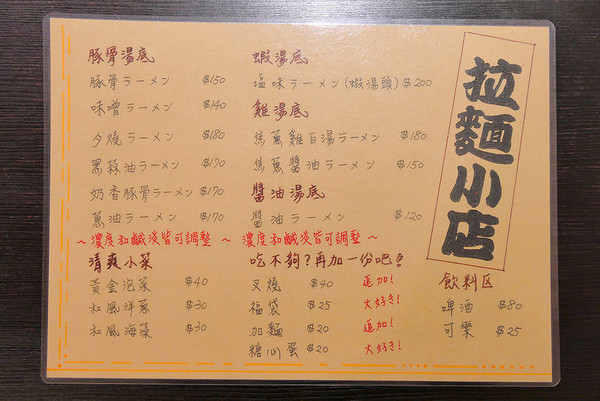 拉麵小店
豚骨湯底
豚骨ラーメン $150
味噌ラーメン $140
夕燒ラーメン $180
黑蒜油ラーメン $170
奶香豚骨ラーメン $170
蔥油ラーメン $170
蝦湯底
塩味ラーメン(蝦湯頭) $200
雞湯底
焦蔥雞白湯ラーメン $180
焦蔥醬油ラーメン $150
醬油湯底
醬油ラーメン $120
~濃度和鹹淡皆可調整 ~ 濃度和鹹淡皆可調整
清爽小菜
黃金泡菜 $40
和風洋蔥 $30
和風海藻 $30
吃不夠?再加一份吧!
叉燒 $40 追加!
福袋 $25 大好き!
加麵 $20 追加!
糖心蛋 $20 大好き!
飲料区
啤酒 $80
可樂 $25